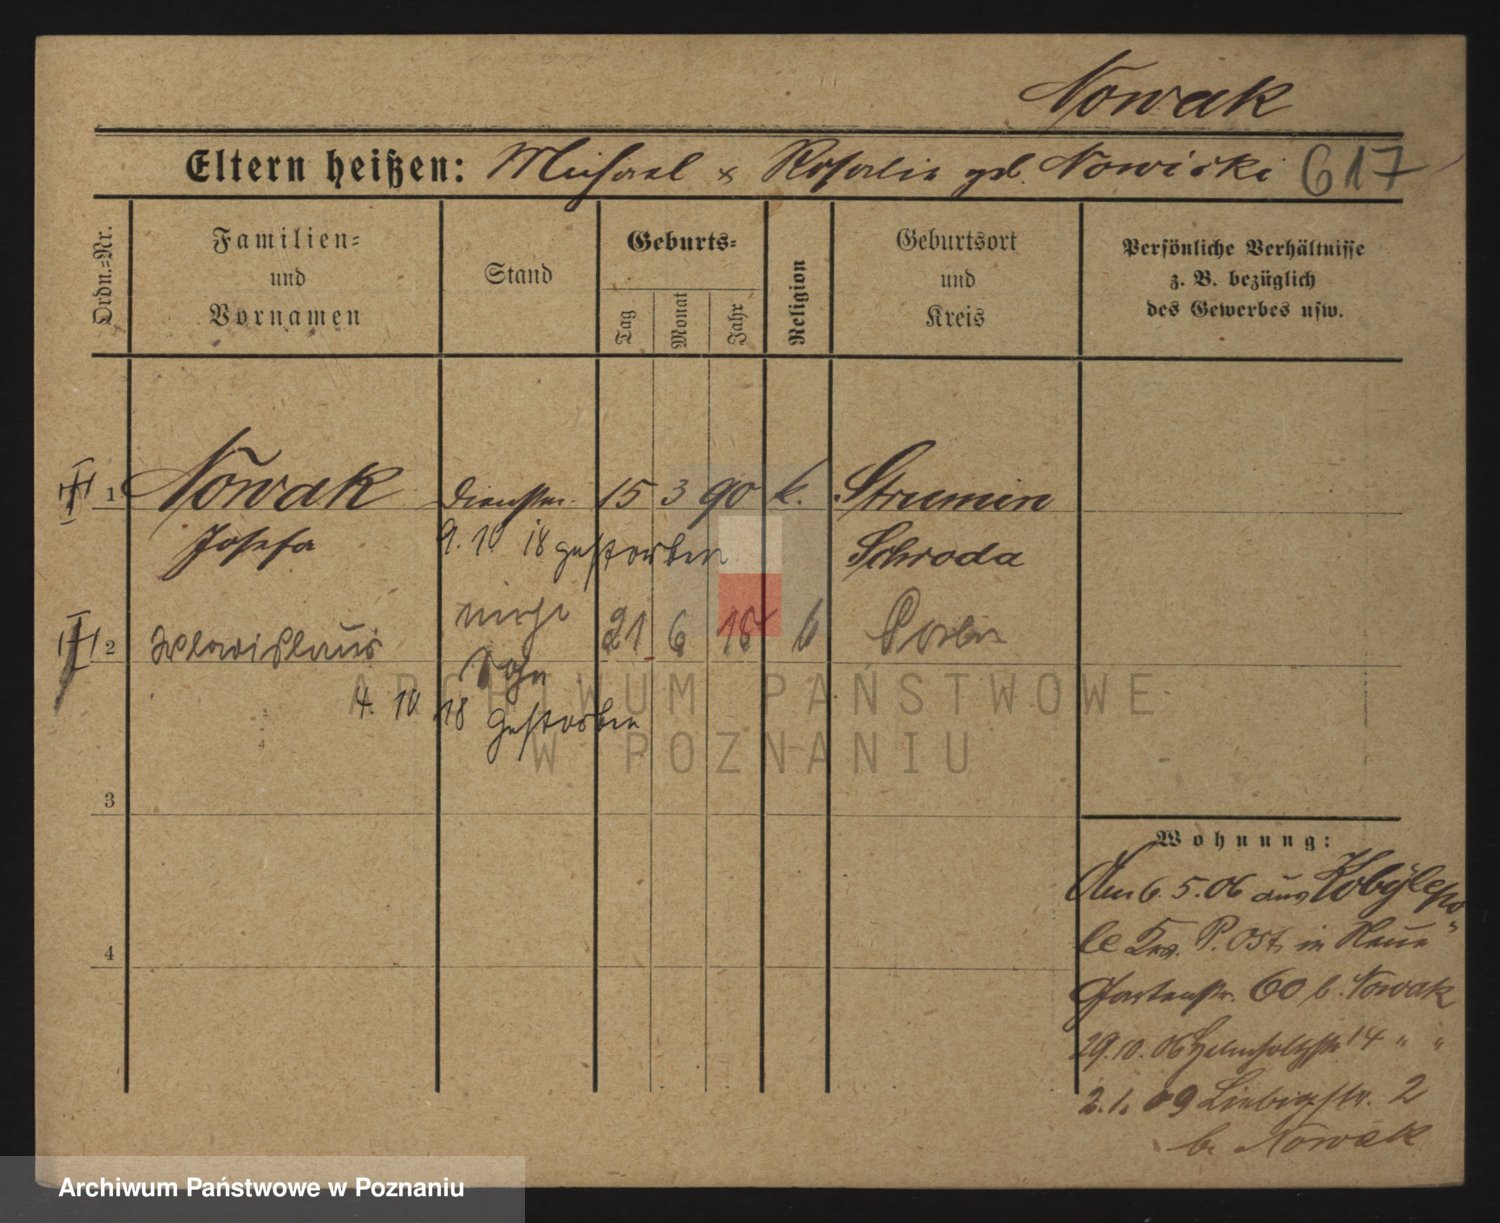 Nowak
Eltern heißen: Michael & Rosalie geb. Nowicki 617
Ordn.=Nr.
Familien=
und
Vornamen
Stand
Geburts=
Tag
Monat
Jahr
Religion
Geburtsort
und
Kreis
Persönliche Verhältnisse
z. B. bezüglich
des Gewerbes usw.
1 Nowak Dienstm. 15 3 90 k. Strumin
Josefa 9. 10 18 gestorben Schroda
2 Wladislaus 21 6 18 k Posen
Sohn
4. 10 18 gestorben
3
4
Wohnung:
Am 6. 5. 06 aus Kobylepo
le Krs. P. Ost, in Neue
Gartenstr. 60 b. Nowak
29. 10. 06 Helmholtzstr 14 " "
2. 1. 09 Liebigstr. 2
b. Nowak
ARCHIWUM PAŃSTWOWE
W POZNANIU
Archiwum Państwowe w Poznaniu